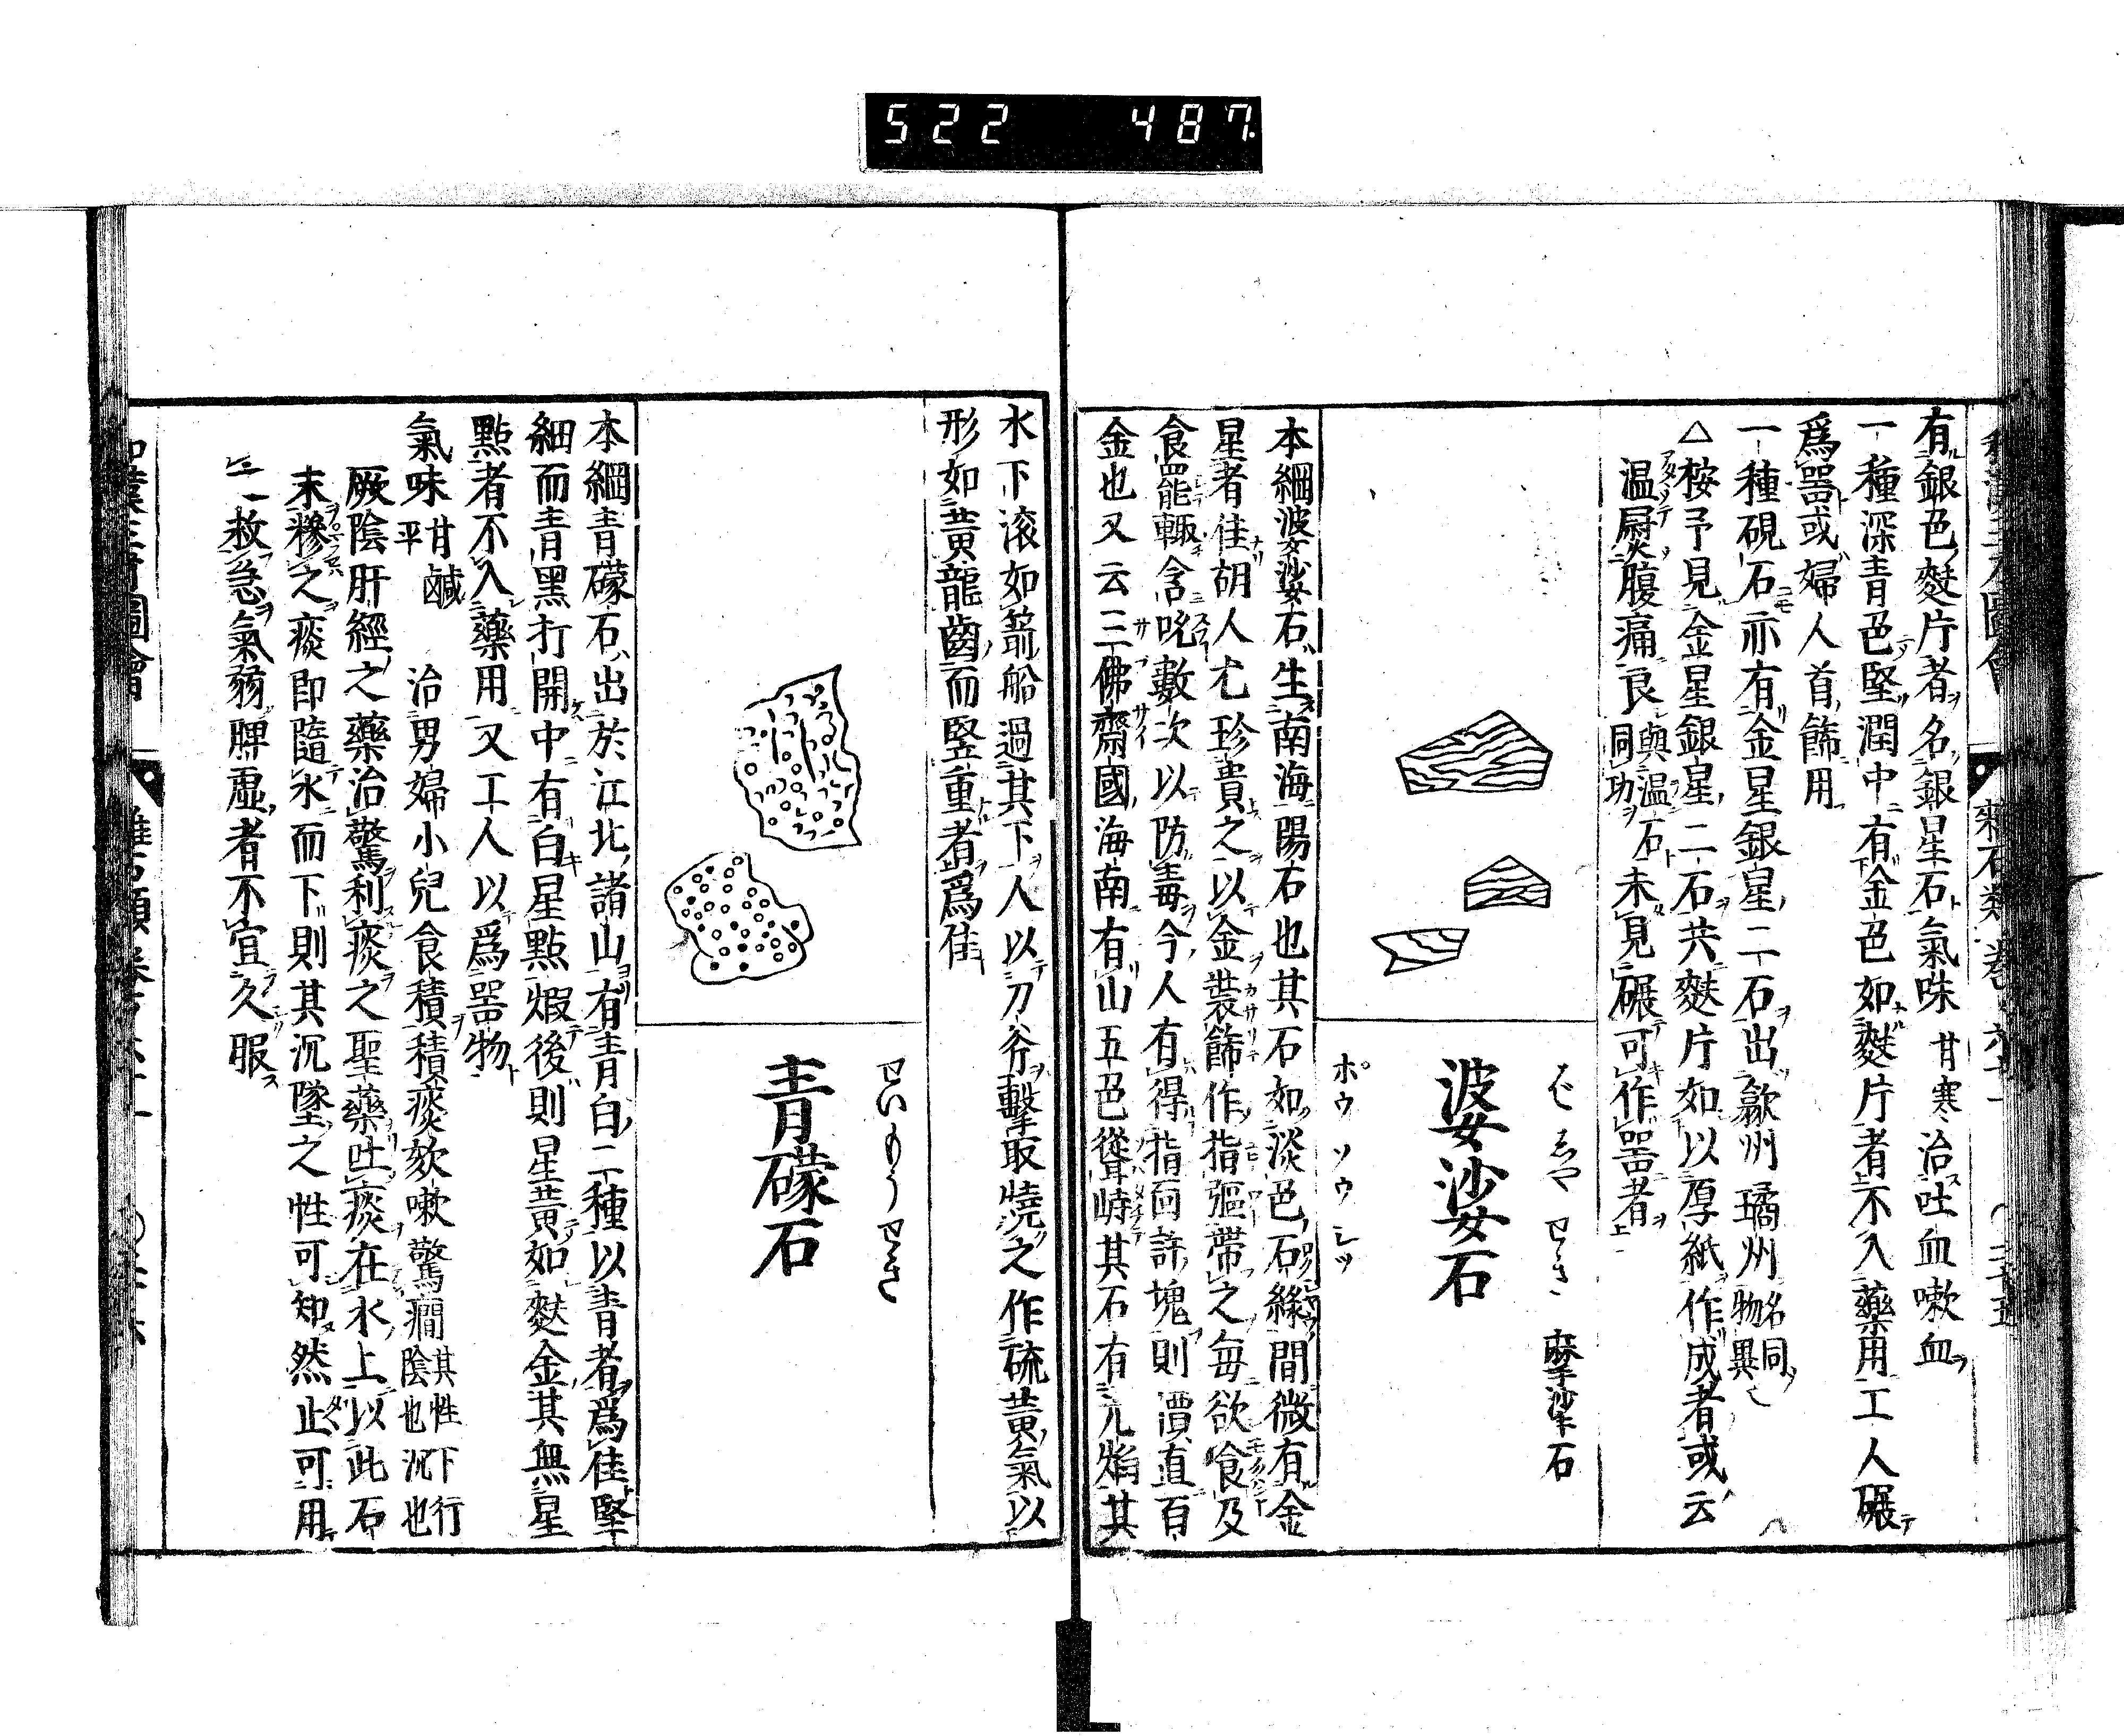 522 487
有銀色麩片者名銀星石氣味甘寒治吐血嗽血
一種深青色堅潤中有金色如麩片者不入藥用工人碾
爲噐或婦人首飾用
一種硯石亦有金星銀星二石出歙州璚州名同物異
△桉予見金星銀星二石共麩片如以厚紙作成者或云
温尉腹痛良與温石同功未見碾可作噐者
婆娑石
ばしや せき
摩挲石
ポウソウシツ
本綱婆娑石生南海陽石也其石如淡色石綠間微有金
星者佳胡人尤珍貴之以金裝飾作指彄帶之每欲食及
食罷輒含吮數次以防毒今人有得指面許塊則價直百
金也又云三佛齋國海南有山五色聳峙其石有光焰其
水下滚如箭船過其下人以刀斧擊取燒之作硫黄氣以
形如黄龍齒而堅重者爲佳
青礞石
せいもうせき
本綱青礞石出於江北諸山有青白二種以青者爲佳堅
細而青黑打開中有白星點煆後則星黄如麩金其無星
點者不入藥用又工人以爲噐物
氣味甘鹹平 治男婦小兒食積積痰欬嗽驚癇其性下行陰也沉也
厥陰肝經之藥治驚利痰之聖藥吐痰在水上以此石
末糝之痰即隨水而下則其沉墜之性可知然止可用
之救急氣弱脾虛者不宜久服